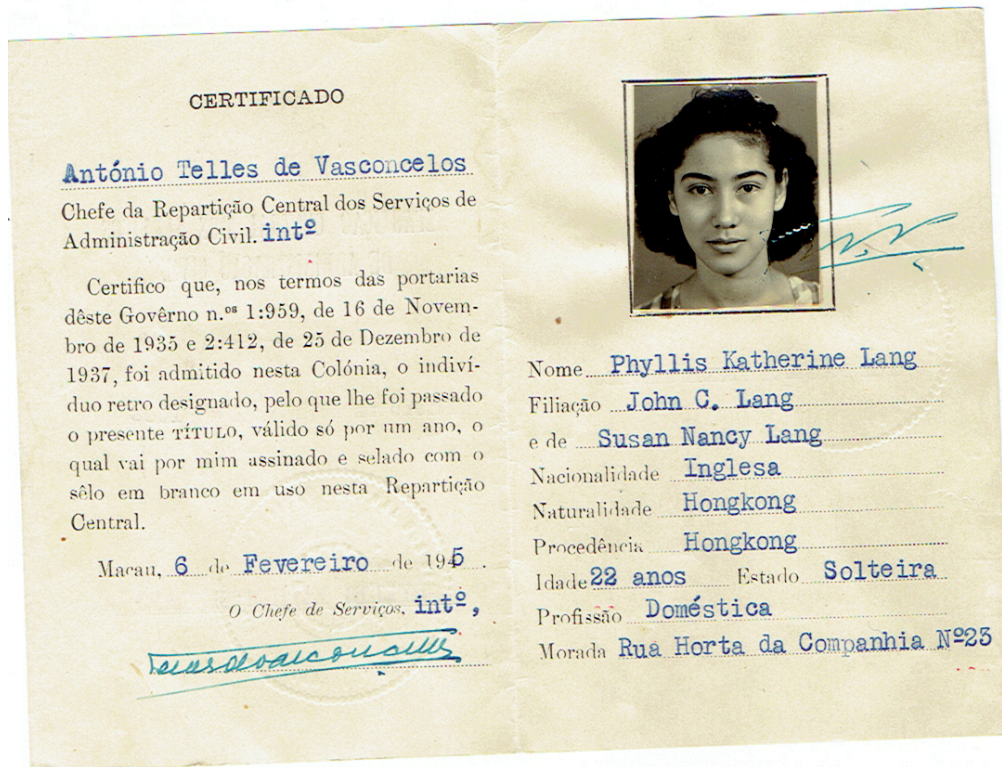 CERTIFICADO
António Telles de Vasconcelos
Chefe da Repartição Central dos Serviços de
Administração Civil. intº
Certifico que, nos termos das portarias
dêste Govêrno n.ᵒˢ 1:959, de 16 de Novem-
bro de 1935 e 2:412, de 25 de Dezembro de
1937, foi admitido nesta Colónia, o indiví-
duo retro designado, pelo que lhe foi passado
o presente TÍTULO, válido só por um ano, o
qual vai por mim assinado e selado com o
sêlo em branco em uso nesta Repartição
Central.
Macau, 6 de Fevereiro de 1945.
O Chefe de Serviços, intº,
Nome Phyllis Katherine Lang
Filiação John C. Lang
e de Susan Nancy Lang
Nacionalidade Inglesa
Naturalidade Hongkong
Procedência Hongkong
Idade 22 anos Estado Solteira
Profissão Doméstica
Morada Rua Horta da Companhia Nº23